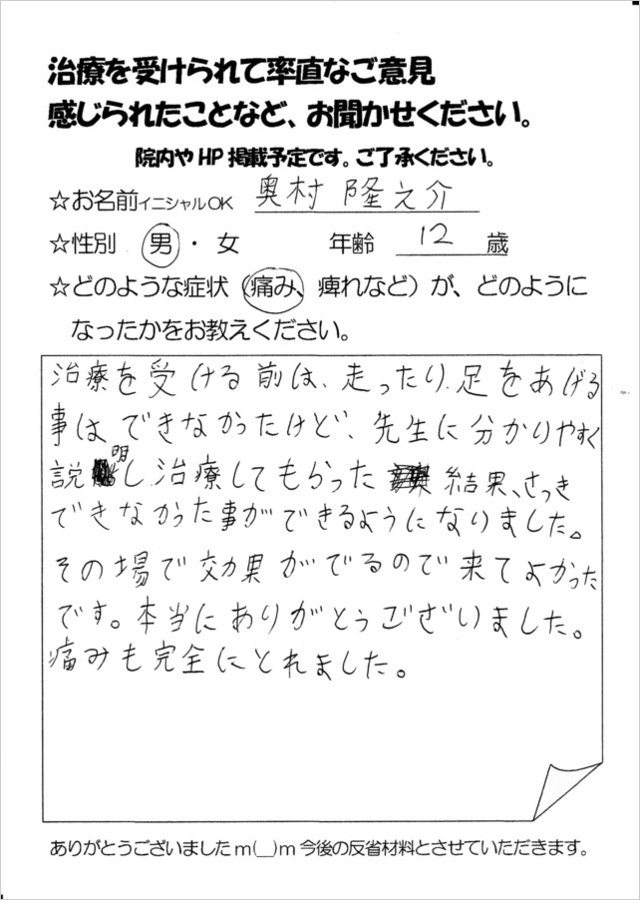 治療を受けられて率直なご意見
感じられたことなど、お聞かせください。
院内やHP掲載予定です。ご了承ください。
☆お名前イニシャルOK 奥村 隆之介
☆性別 男・女 年齢 12 歳
☆どのような症状（痛み、痺れなど）が、どのように
なったかをお教えください。
治療を受ける前は、走ったり、足をあげる
事はできなかったけど、先生に分かりやすく
説明し治療してもらった結果、さっき
できなかった事ができるようになりました。
その場で効果がでるので来てよかった
です。本当にありがとうございました。
痛みも完全にとれました。
ありがとうございましたm(__)m今後の反省材料とさせていただきます。